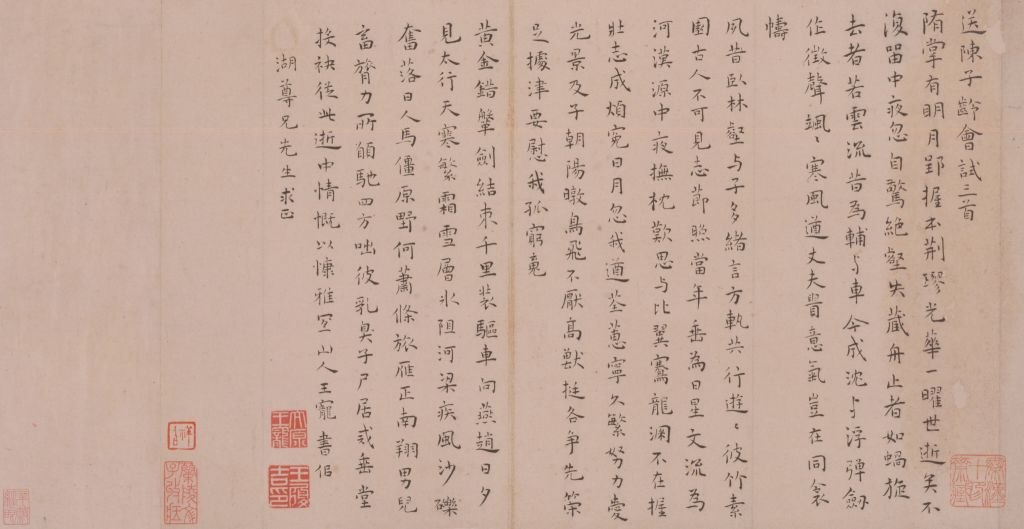 送陳子齡會試三首
隋掌有明月郢握本荆璆光華一曜世逝矣不
復留中夜忽自驚絶壑失藏舟止者如蝸旋
去者若雲流昔為輔与車今成沈与浮彈劔
作徵聲颯〻寒風遒丈夫貴意氣豈在同衾
幬
夙昔臥林壑与子多緒言方軌共行遊〻彼竹素
園古人不可見志節照當年垂為日星文流為
河漢源中夜撫枕歎思与比翼騫龍淵不在握
壯志成煩寃日月忽我遒荃蕙寧久繁努力愛
光景及子朝陽暾鳥飛不厭高獸挺各争先榮
足據津要慰我孤窮蒐
黄金錯鞶劍結束千里裝驅車向燕趙日夕
見太行天寒繁霜雪層冰阻河梁疾風沙礫
奮落日人馬僵原野何蕭條旅雁正南翔男兒
富膂力所願馳四方咄彼乳臭子尸居戒垂堂
挨袂從此逝中情慨以慷雅宜山人王寵書侣
湖尊兄先生求正
太原王寵
王履吉印